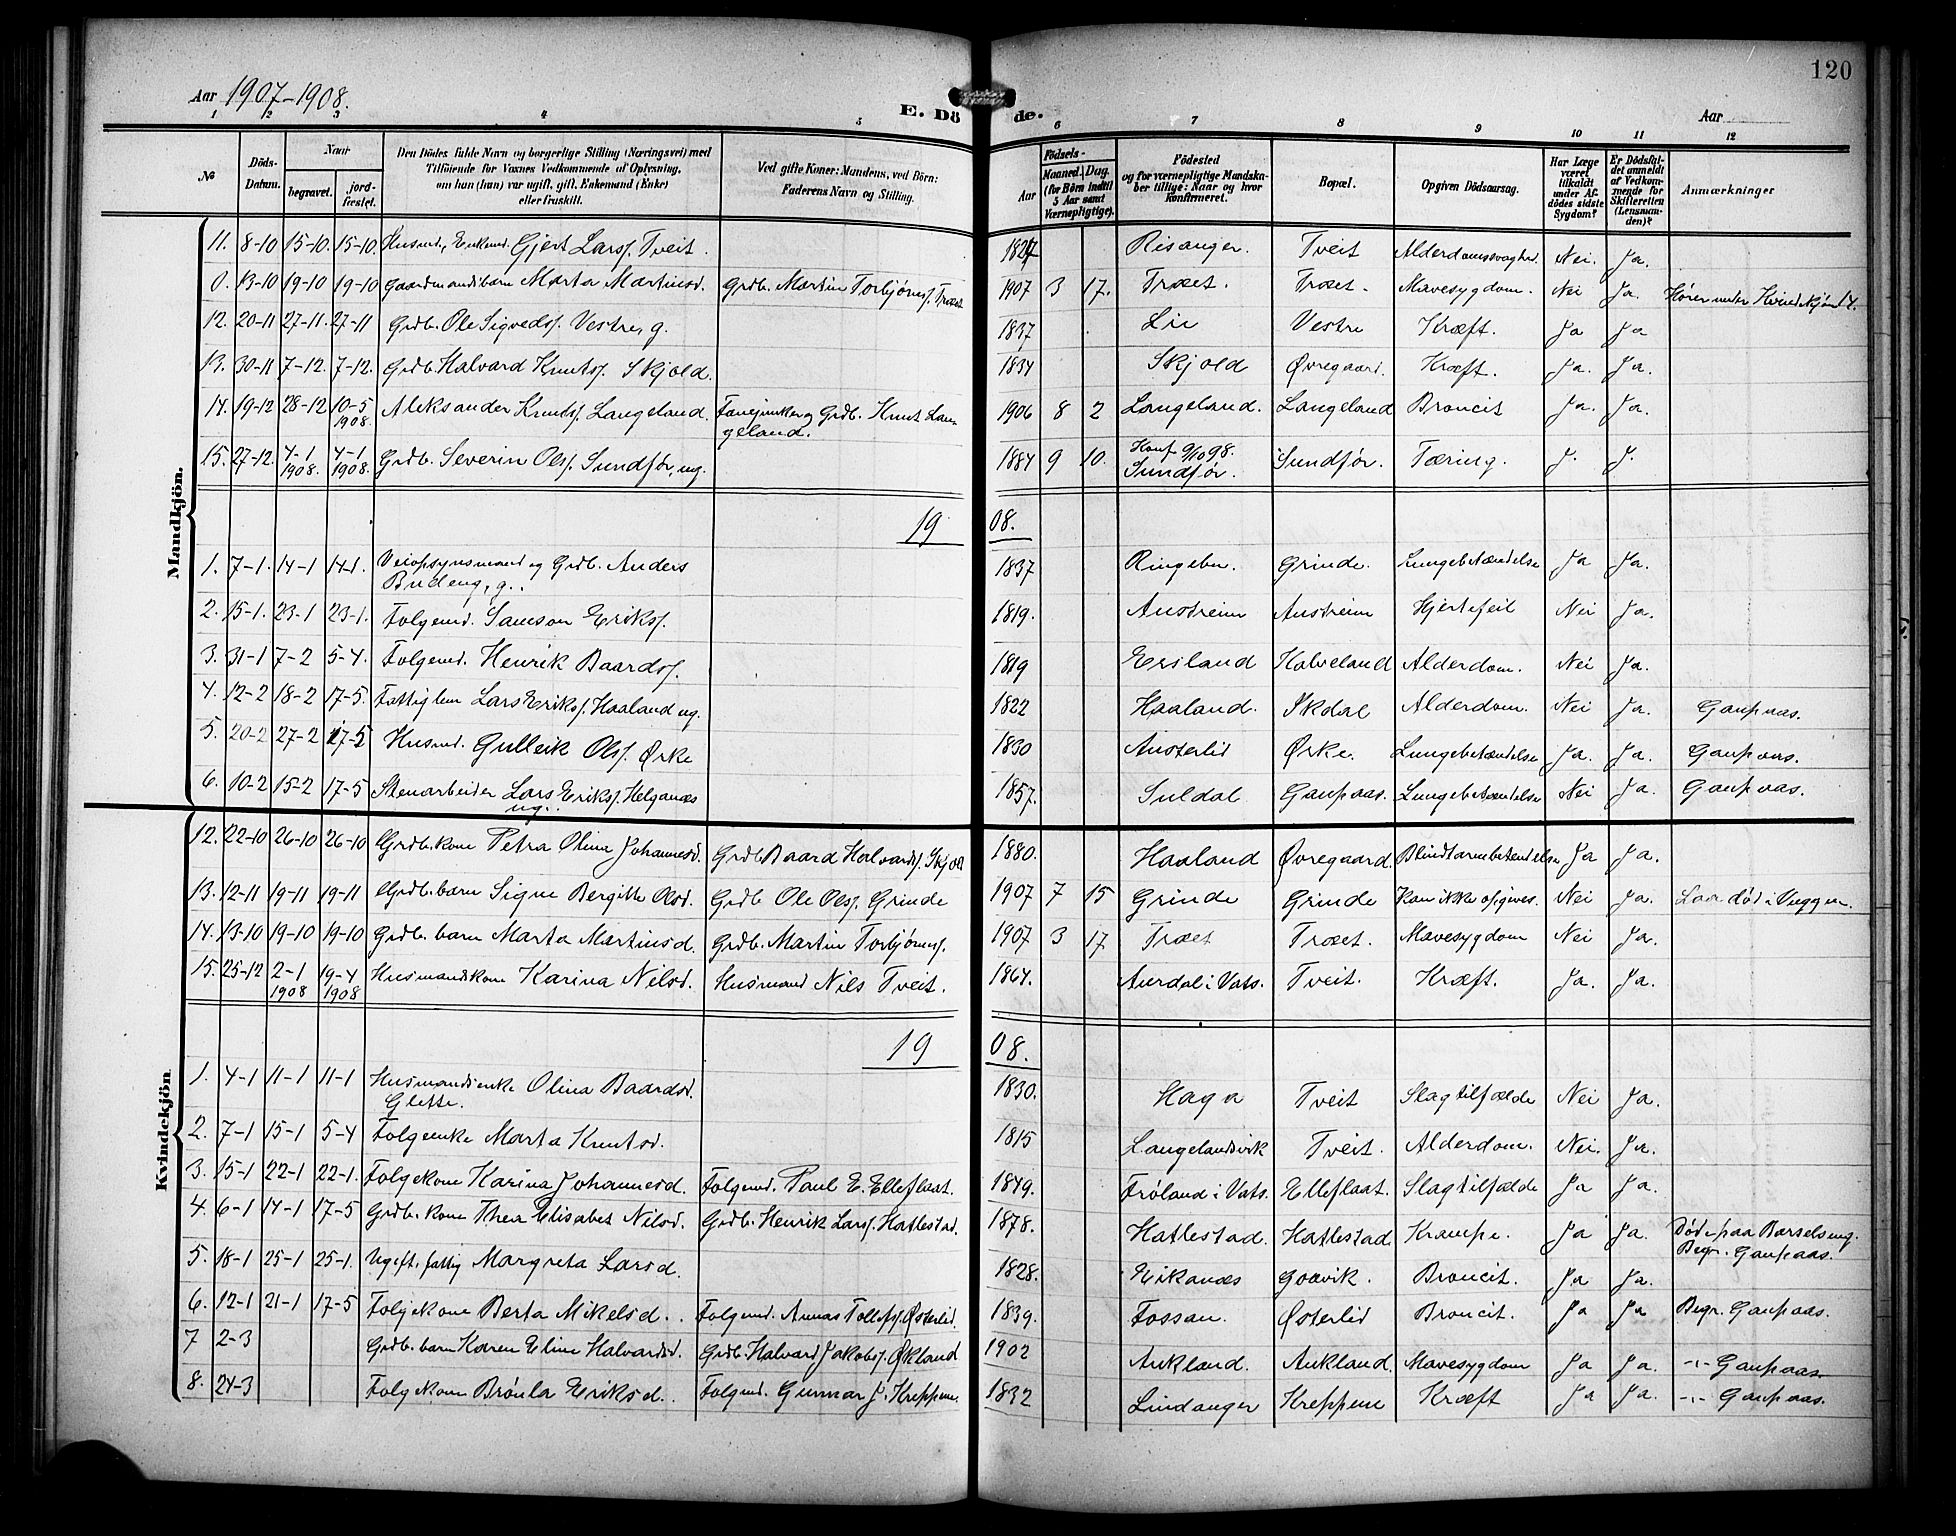 120
Aar 1907-1908.
E. Döde.
Aar
1 2 3 4 5 6 7 8 9 10 11 12
No
Döds-Datum.
Naar
begravet.
jord-fæstet.
Den Dödes fulde Navn og borgerlige Stilling (Næringsvei) med
Tilföiende for Voxnes Vedkommende af Oplysning,
om han (hun) var ugift, gift, Enkemand (Enke)
eller fraskilt.
Ved gifte Koner: Mandens, ved Börn:
Faderens Navn og Stilling.
Födsels-
Aar
Maaned. Dag
(for Börn indtil
5 Aar samt
Værnepligtige).
Födested
og for værnepligtige Mandska-
ber tillige: Naar og hvor
konfirmeret.
Bopæl.
Opgiven Dödsaarsag.
Har Læge
været
tilkaldt
under Af-
dödes sidste
Sygdom?
Er Dödsfal-
det anmeldt
af Vedkom-
mende for
Skifteretten
(Lensman-
den)?
Anmærkninger
Mandkjön.
11. 8-10 15-10. 15-10. Husmd, Enkemd. Gjert Larss. Tveit. 1827 Risanger. Tveit Alderdomssvaghed. Nei. Ja.
0. 13-10 19-10 19-10 Gaardmandsbarn Marta Martinsd. Grdb. Martin Torbjörnss. Træet 1907 3 17. Træet. Træet. Mavesygdom. Nei Ja. Hører under Kvindekjøn 14.
12. 20-11 27-11. 27-11 Grdb. Ole Sigvedss. Vestre, g. 1837 Lie Vestre Kræft. Ja Ja
13. 30-11 7-12. 7-12. Grdb. Halvard Knutss. Skjold. 1834 Skjold Øvregaard. Kræft. Ja. Ja.
14. 19-12 28-12 10-5 1908. Aleksander Knutss. Langeland. Fanejunker og Grdb. Knut Lan-
geland. 1906 8 2 Langeland. Langeland Broncit Ja. Ja.
15. 27-12. 4-1 1908. 4-1 1908. Grdb. Severin Olss. Sundfør, ug. 1884 9 10. Konf. 9/10 98.
Sundfør. Sundfør. Tæring. J. J.
1908.
1. 7-1. 14-1 14-1. Veiopsynsmand og Grdb. Anders
Budeng, g. 1837 Ringebu. Grinde. Lungebetændelse Ja Ja.
2. 15-1. 23-1 23-1. Folgemd. Samson Erikss. 1819. Austreim Austreim Hjertefeil Nei Ja.
3. 31-1 7-2 5-4. Folgemd. Henrik Baardss. 1819 Esiland Halveland Alderdom. Nei Ja.
4. 12-2 18-2 17-5. Fattiglem Lars Erikss. Haaland ug. 1822 Haaland. Ikdal Alderdom. Nei Ja. Gaupaas.
5. 20-2 27-2 17-5 Husmd. Gulleik Olss. Ørke 1830 Austerlid Ørke. Lungebetændelse Ja. Ja. Gaupaas.
6. 10-2 15-2 17-5 Stenarbeider Lars Erikss. Helganæs
ug. 1857. Suldal. Gaupaas. Lungebetændelse Nei Ja. Gaupaas.
Kvindekjön.
12. 22-10 26-10 26-10 Grdb. kone Petra Olina Johannesd. Grdb Baard Halvardss. Skjold 1880. Haaland Øvregaard. Blindtarmbetendelse Ja Ja.
13. 12-11 19-11 19-11 Grdb. barn Signe Bergitte Olsd. Grdb Ole Olss. Grinde 1907 7 15 Grinde Grinde Kan ikke opgives. Nei Ja. Laa død i Vuggen.
14. 13-10 19-10 19-10 Grdb. barn Marta Martinsd. Grdb. Martin Torbjörnss. 1907 3 17 Træet Træet. Mavesygdom Nei Ja.
15. 25-12 2-1 1908 19-4 1908 Husmandskone Karina Nilsd. Husmand Nils Tveit. 1864. Aurdal i Vats. Tveit. Kræft. Ja. Ja.
1908.
1. 4-1 11-1 11-1 Husmandsenke Olina Baardsd.
Glette. 1830. Haga Tveit Slagtilfælde Nei Ja.
2. 7-1 15-1 5-4 Folgeenke Marta Knutsd. 1815 Langelandsvik Tveit. Alderdom. Nei. Ja.
3. 15-1 22-1 22-1. Folgekone Karina Johannesd. Folgemd. Paul E. Elleflaat. 1849. Frøland i Vats. Elleflaat. Slagtilfælde Ja Ja.
4. 6-1 14-1 17-5 Grdb. kone Thea Elisabet Nilsd. Grdb. Henrik Larss. Hatlestad. 1878. Hatlestad. Hatlestad Krampe. Ja Ja. Død paa Barselseng.
Begr. Gaupaas.
5. 18-1 25-1 25-1. Ugift, fattig Margreta Larsd. 1828. Eikanæs Goavik. Broncit. Ja Ja.
6. 12-1 21-1 17-5 Folgekone Berta Mikelsd. Folgemd. Aunas Tollefss. Østerlid. 1839. Fossan. Østerlid Broncit. Ja Ja Begr. Gaupaas.
7 2-3 Grdb. barn Karen Eline Halvardsd. Grdb. Halvard Jakobss. Økland 1902 Aukland. Aukland. Mavesygdom Ja Ja. -"- Gaupaas.
8. 24-3 Folgekone Brønla Eriksd. Folgemd. Gunnar J. Kreppene. 1832 Lindanger Kreppene Kræft Ja Ja. -"- Gaupaas.